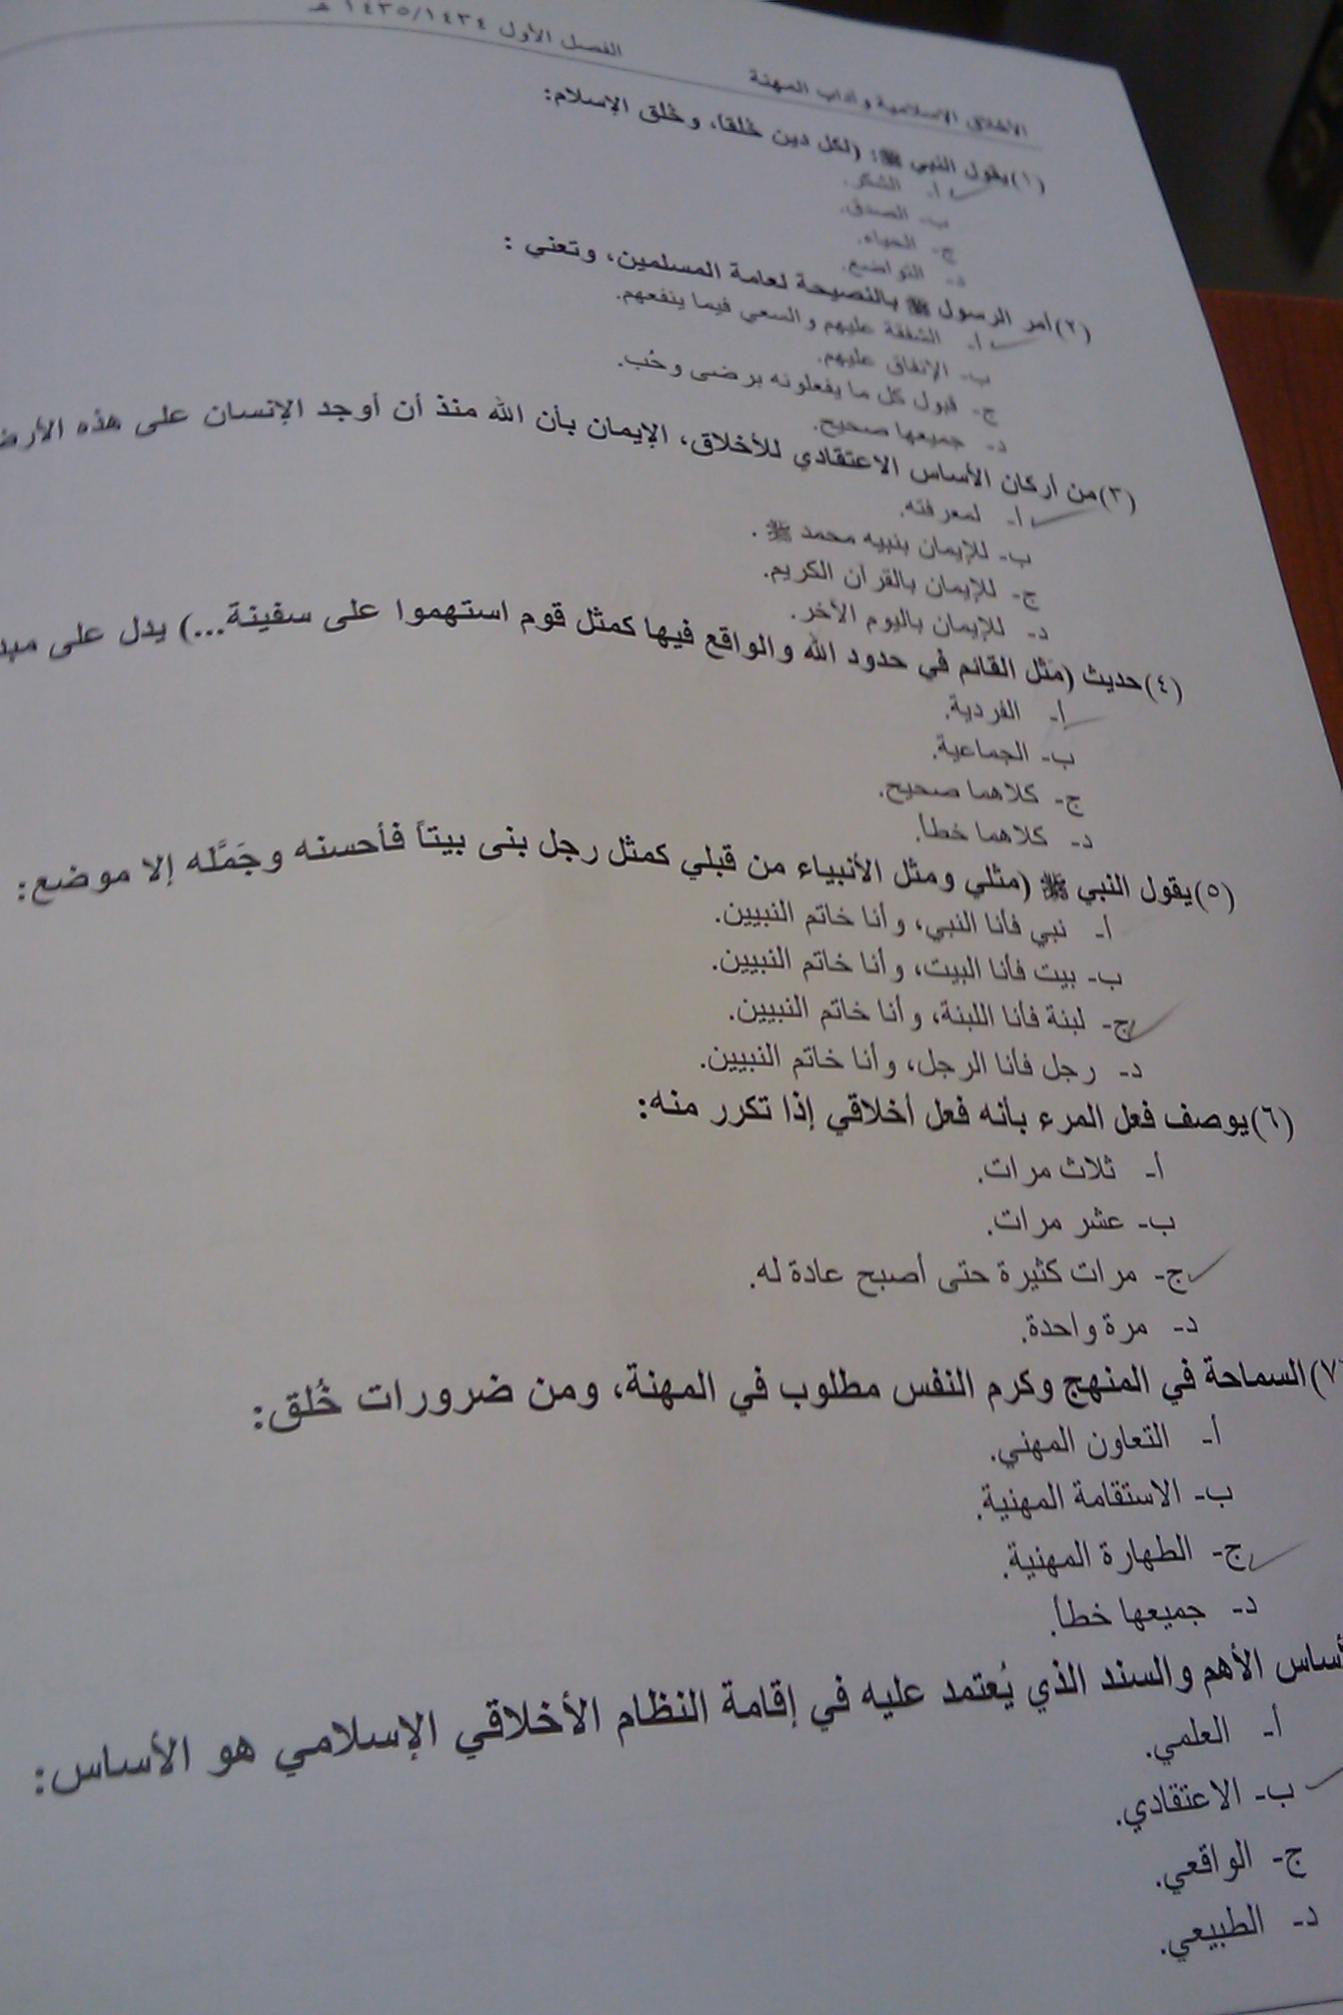 الأخلاق الإسلامية وآداب المهنة الفصل الأول ١٤٣٥/١٤٣٤ هـ
(١) يقول النبي ﷺ: (لكل دين خُلقا، وخُلق الإسلام:
أ- الشكر.
ب- الصدق.
ج- الحياء.
د- التواضع.
(٢) أمر الرسول ﷺ بالنصيحة لعامة المسلمين، وتعني :
أ- الشفقة عليهم والسعي فيما ينفعهم.
ب- الإنفاق عليهم.
ج- قبول كل ما يفعلونه برضى وحُب.
د- جميعها صحيح.
(٣) من أركان الأساس الاعتقادي للأخلاق، الإيمان بأن الله منذ أن أوجد الإنسان على هذه
أ- لمعرفته.
ب- للإيمان بنبيه محمد ﷺ .
ج- للإيمان بالقرآن الكريم.
د- للإيمان باليوم الآخر.
(٤) حديث (مَثل القائم في حدود الله والواقع فيها كمثل قوم استهموا على سفينة...) يدل على
أ- الفردية.
ب- الجماعية.
ج- كلاهما صحيح.
د- كلاهما خطأ.
(٥) يقول النبي ﷺ (مثلي ومثل الأنبياء من قبلي كمثل رجل بنى بيتاً فأحسنه وجَمَّله إلا موضع:
أ- نبي فأنا النبي، وأنا خاتم النبيين.
ب- بيت فأنا البيت، وأنا خاتم النبيين.
ج- لبنة فأنا اللبنة، وأنا خاتم النبيين.
د- رجل فأنا الرجل، وأنا خاتم النبيين.
(٦) يوصف فعل المرء بأنه فعل أخلاقي إذا تكرر منه:
أ- ثلاث مرات.
ب- عشر مرات.
ج- مرات كثيرة حتى أصبح عادة له.
د- مرة واحدة.
٧) السماحة في المنهج وكرم النفس مطلوب في المهنة، ومن ضرورات خُلق:
أ- التعاون المهني.
ب- الاستقامة المهنية.
ج- الطهارة المهنية.
د- جميعها خطأ.
الأهم والسند الذي يُعتمد عليه في إقامة النظام الأخلاقي الإسلامي هو الأساس:
أ- العلمي.
ب- الاعتقادي.
ج- الواقعي.
د- الطبيعي.